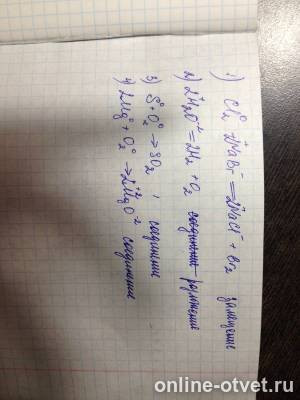 1) Cl₂⁰ + 2NaBr⁻ = 2NaCl⁻ + Br₂ замещение
2) 2H₂O⁻² = 2H₂ + O₂ соединение разложение
3) S⁰ + O₂⁰ → SO₂, соединение
4) 2Mg⁰ + O₂⁰ → 2Mg⁺²O⁻² соединение
online-otvet.ru